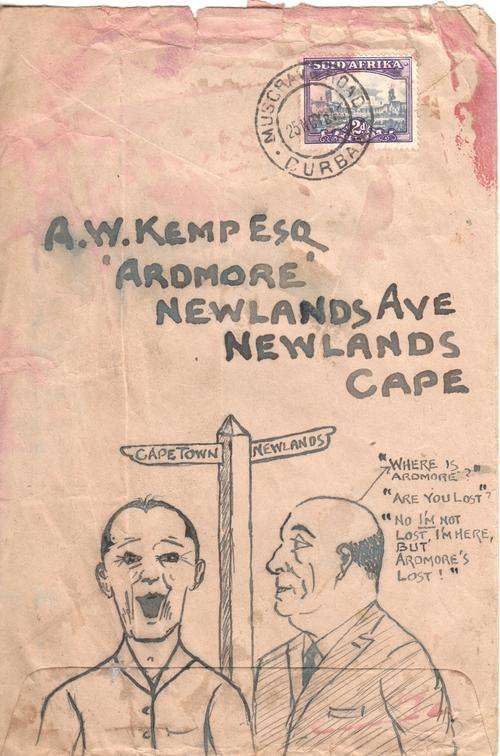 SUID-AFRIKA
MUSGRAVE ROAD
DURBAN
A.W. KEMP ESQ
'ARDMORE'
NEWLANDS AVE
NEWLANDS
CAPE
CAPETOWN
NEWLANDS
"WHERE IS
ARDMORE?"
"ARE YOU LOST"?
"NO I'M NOT
LOST, I'M HERE,
BUT
ARDMORE'S
LOST!"